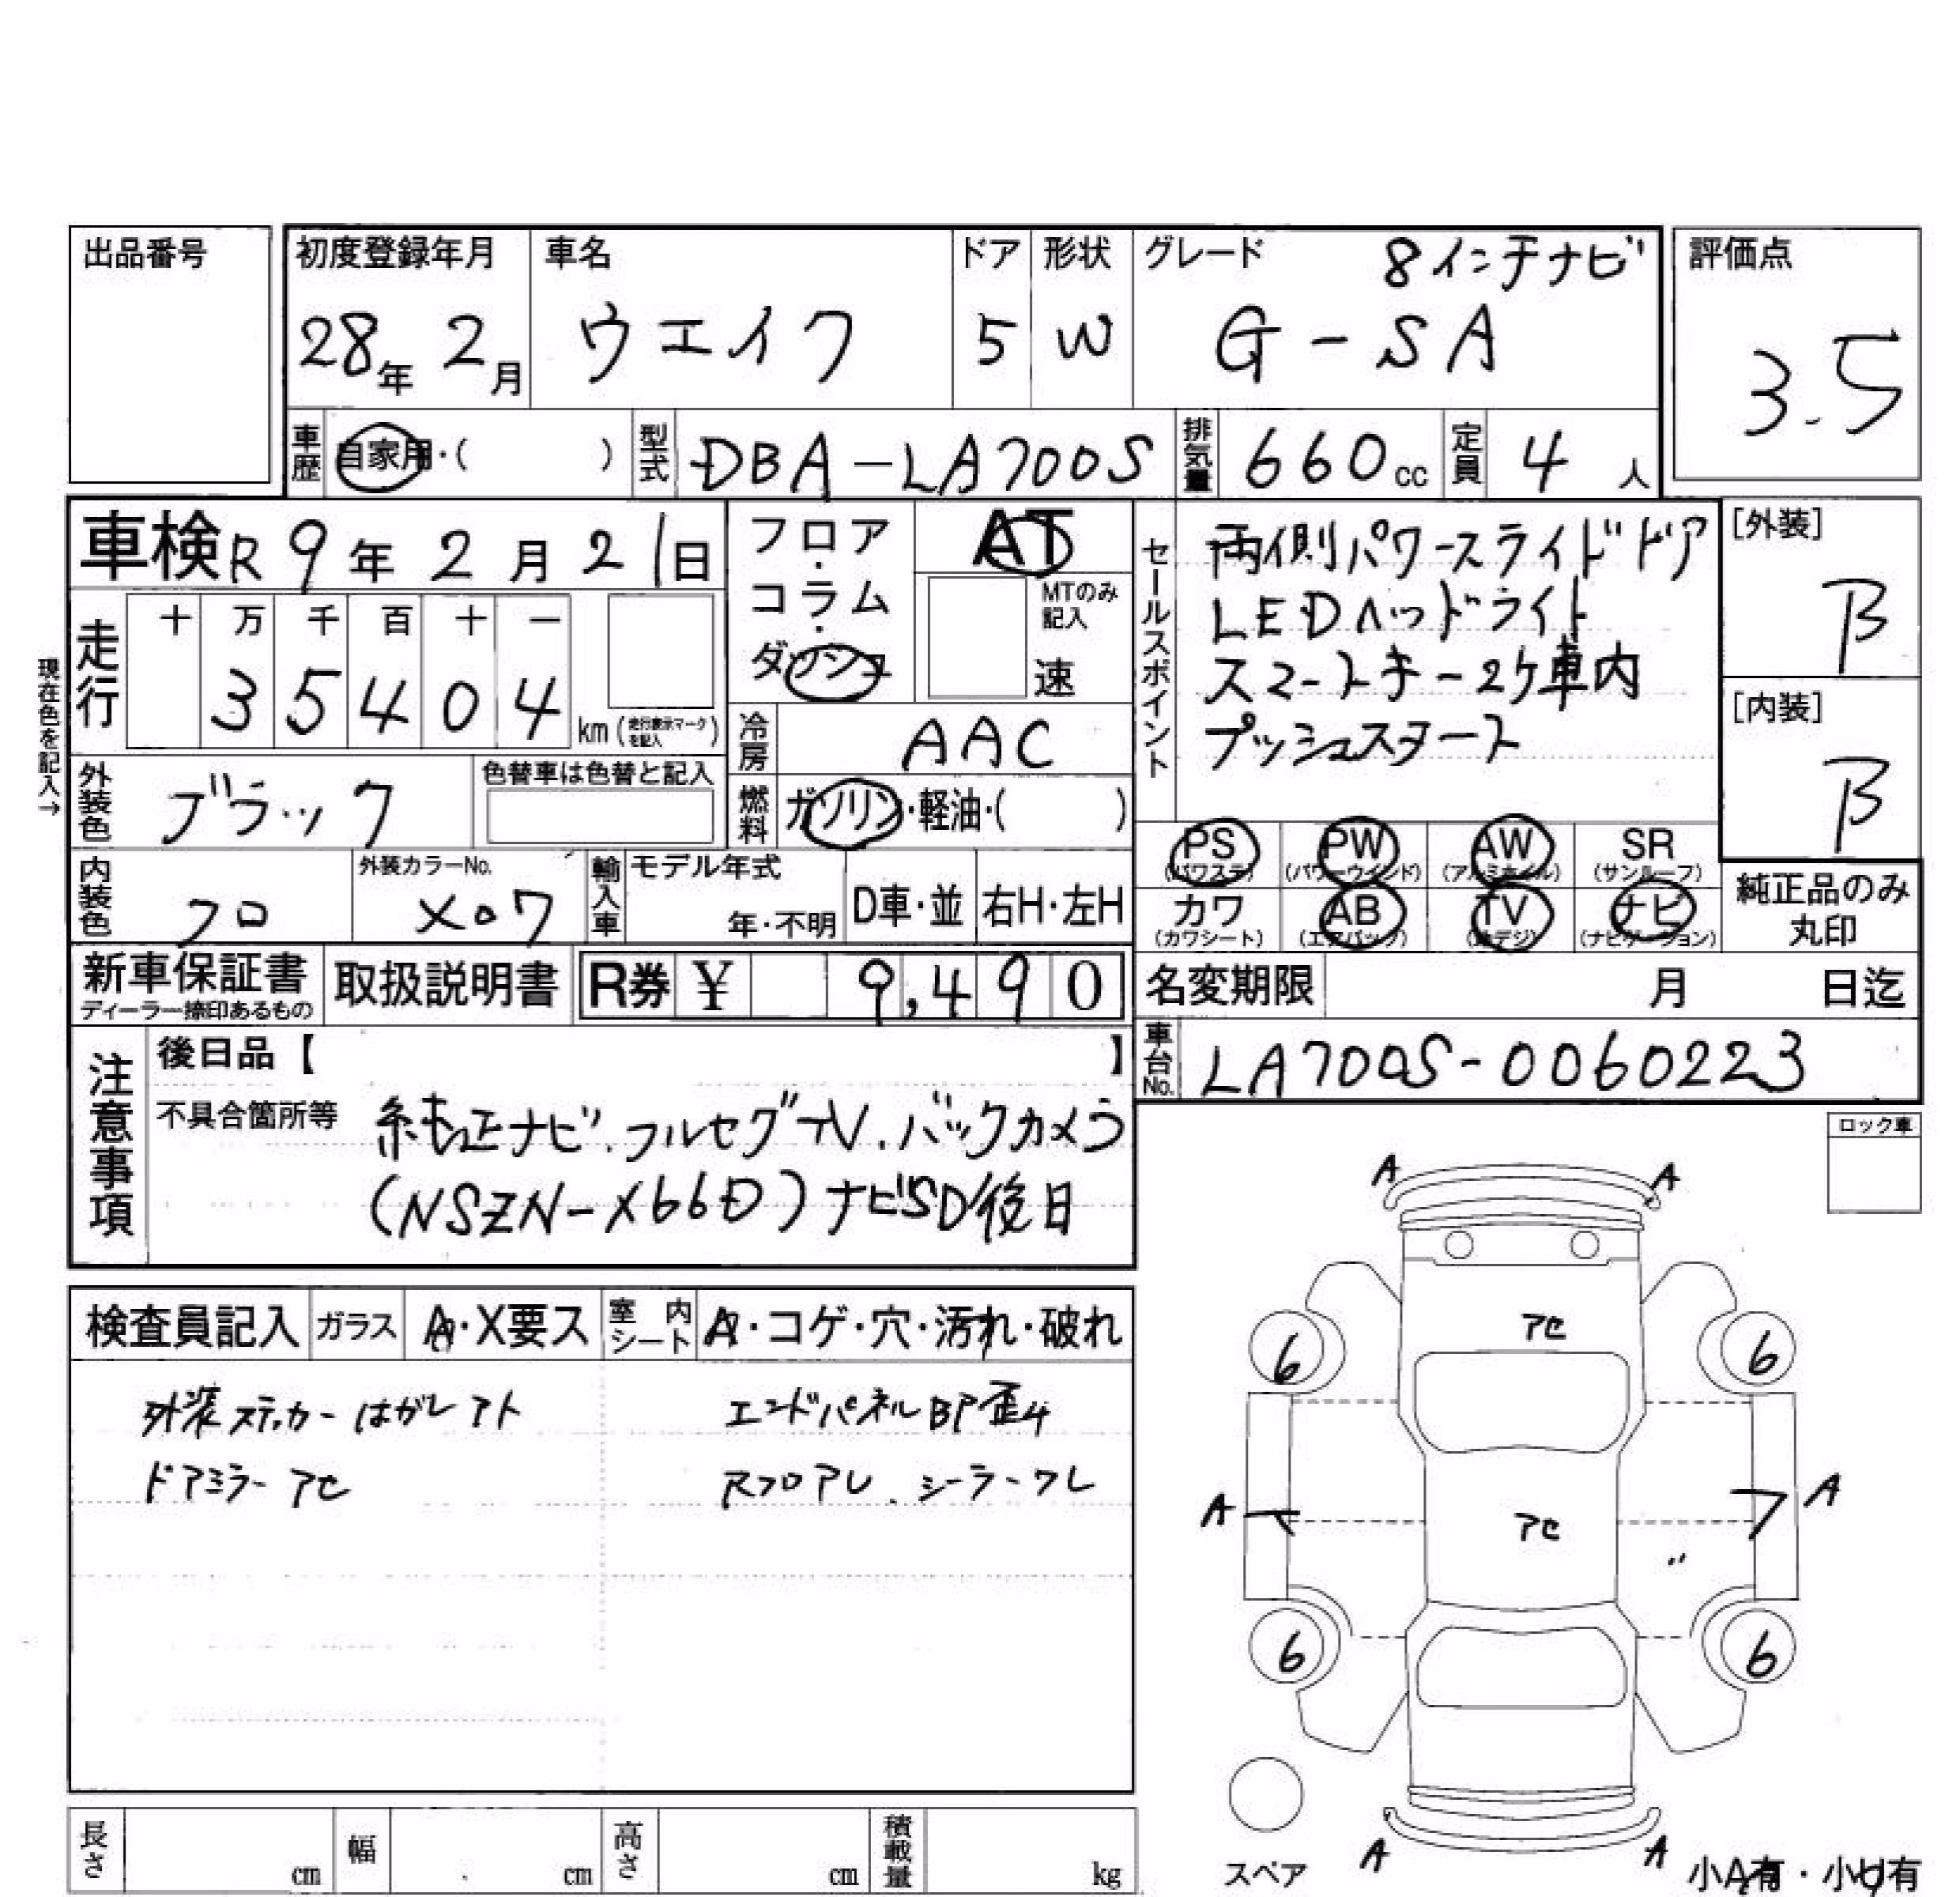 出品番号
初度登録年月 28年 2月
車名 ウエイク
ドア 5
形状 W
グレード 8インチナビ
G-SA
評価点 3.5
車歴 自家用・( )
型式 DBA-LA700S
排気量 660cc
定員 4人
車検 R9年 2月 21日
フロア・コラム・ダッシュ
AT
MTのみ記入
速
走行 十 万 千 百 十 一
35404 km (走行表示マークを記入)
現在色を記入→
冷房 AAC
外装色 ブラック
色替車は色替と記入
燃料 ガソリン・軽油・( )
内装色 クロ
外装カラーNo. X07
輸入車 モデル年式 年・不明
D車・並
右H・左H
セールスポイント
両側パワースライドドア
LEDヘッドライト
スマートキー2ケ車内
プッシュスタート
[外装] B
[内装] B
PS (パワステ)
PW (パワーウインド)
AW (アルミホイル)
SR (サンルーフ)
カワ (カワシート)
AB (エアバック)
TV (地デジ)
ナビ (ナビゲーション)
純正品のみ
丸印
新車保証書
ディーラー捺印あるもの
取扱説明書
R券 ¥ 9,490
名変期限 月 日迄
車台No. LA700S-0060223
注意事項
後日品【 】
不具合箇所等
純正ナビ.フルセグTV.バックカメラ
(NSZN-X66D)ナビSD後日
ロック車
検査員記入
ガラス A・X要ス
室内シート A・コゲ・穴・汚れ・破れ
外装ステッカーはがしアト
ドアミラーアセ
エンドパネルBP歪4
RフロアU.シーラーワレ
A A
アセ
6 6
A A
アセ
〃
6 6
A A
スペア
小A有・小U有
長さ cm
幅 cm
高さ cm
積載量 kg